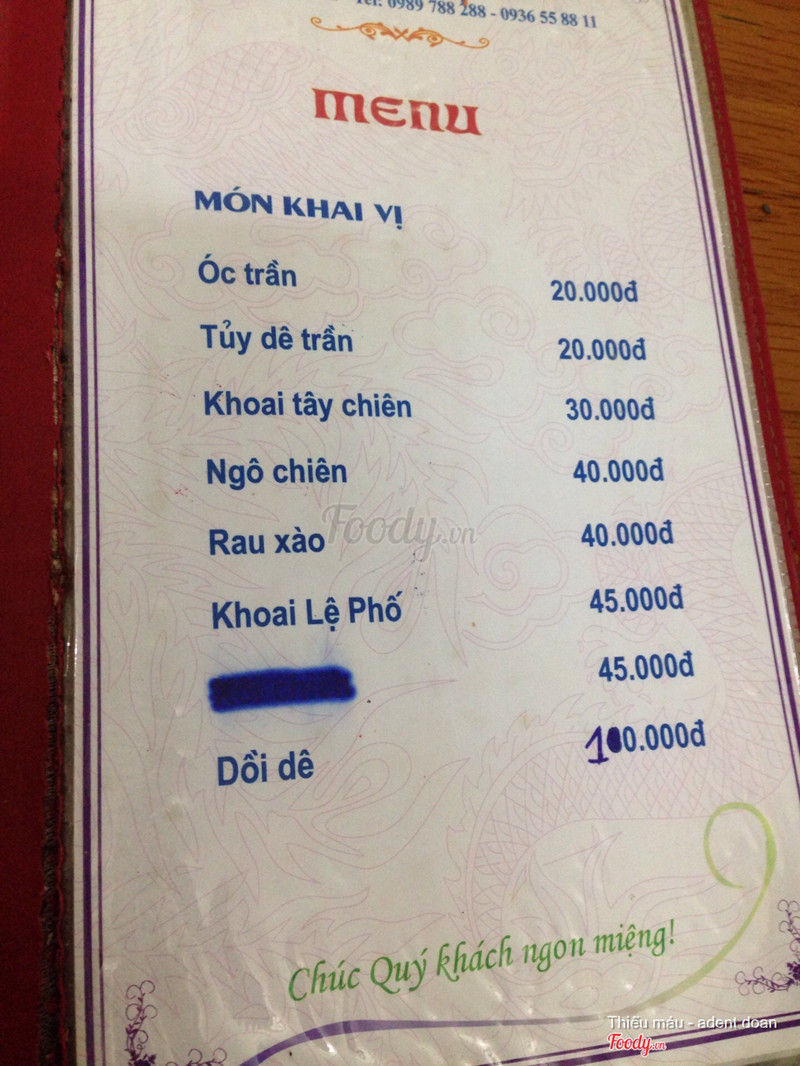 Tel: 0989 788 288 - 0936 55 88 11
MENU
MÓN KHAI VỊ
Óc trần 20.000đ
Tủy dê trần 20.000đ
Khoai tây chiên 30.000đ
Ngô chiên 40.000đ
Rau xào 40.000đ
Khoai Lệ Phố 45.000đ
45.000đ
Dồi dê 100.000đ
Chúc Quý khách ngon miệng!
Foody.vn
Thiếu máu - adent doan
Foody.vn